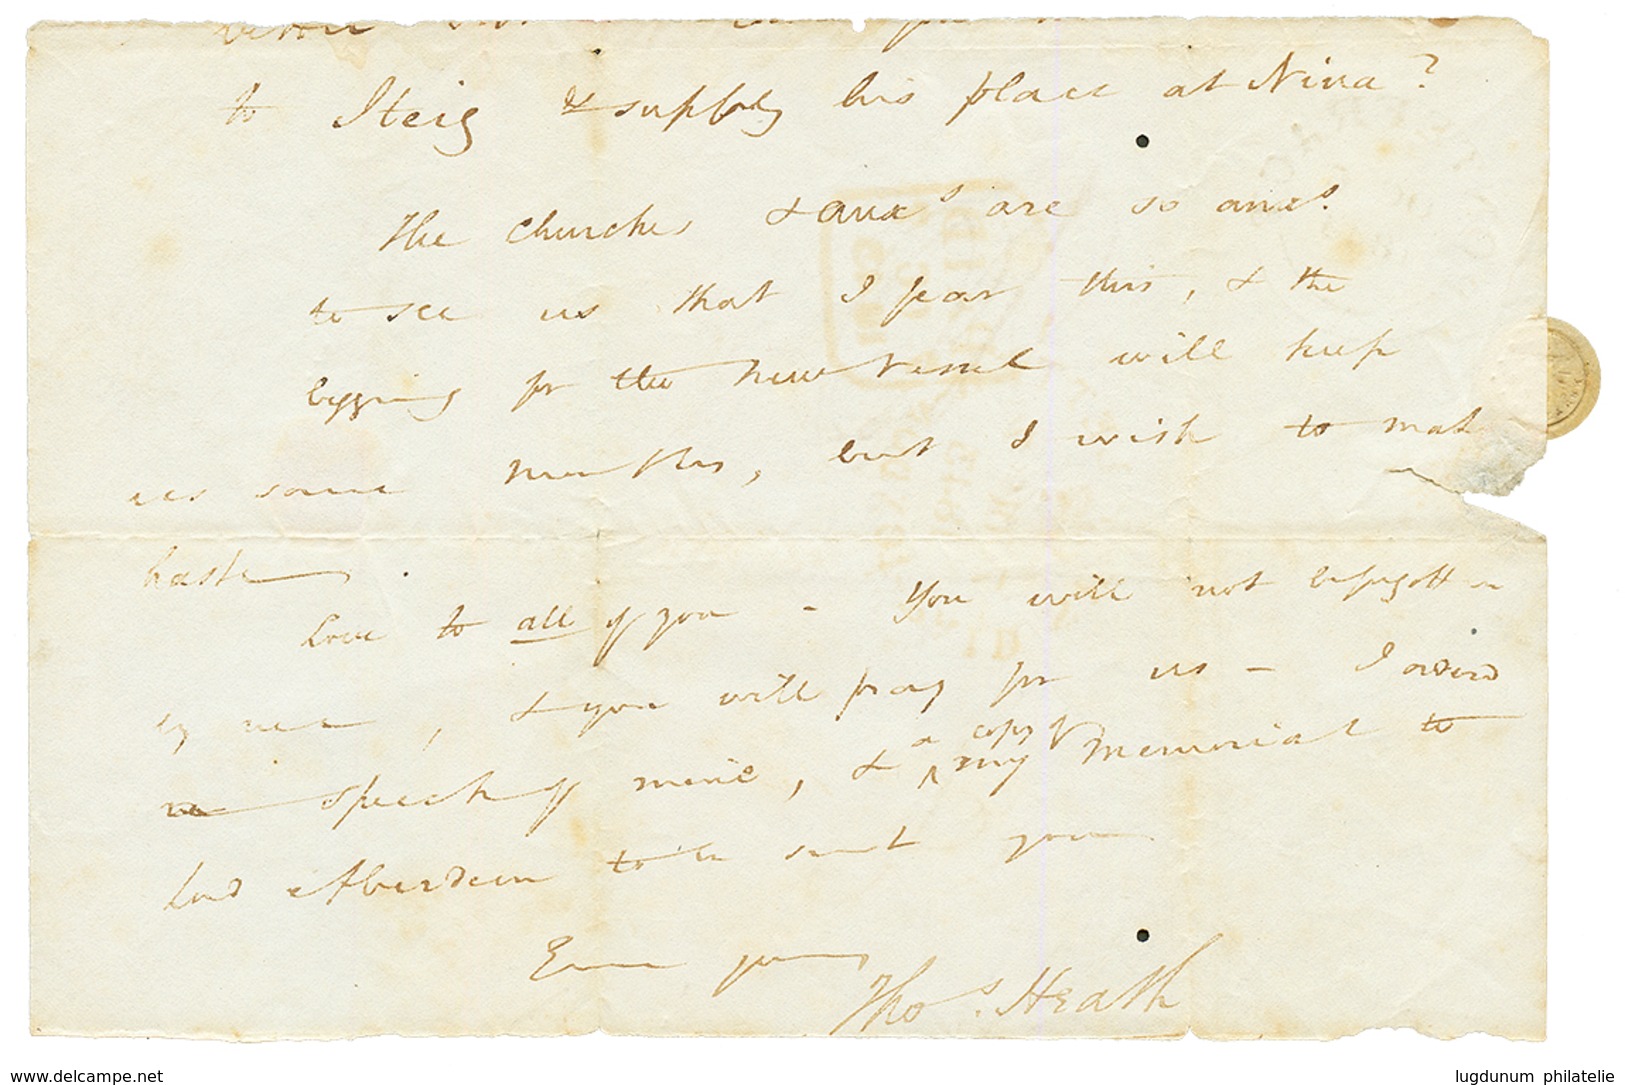 to Steig & supply his place at Niua?
The Churches & auxs are so anxs.
to see us that I fear this, & the
begging for the New Vessel will keep
us some months, but I wish to make
haste.
Love to all of you - You will not be forgotten
by me, & you will pray for us - I
speech of mine, & a copy of my Memorial to
Lord Aberdeen to be sent you
Ever yours
Thos. Heath
www.delcampe.net
lugdunum philatelie